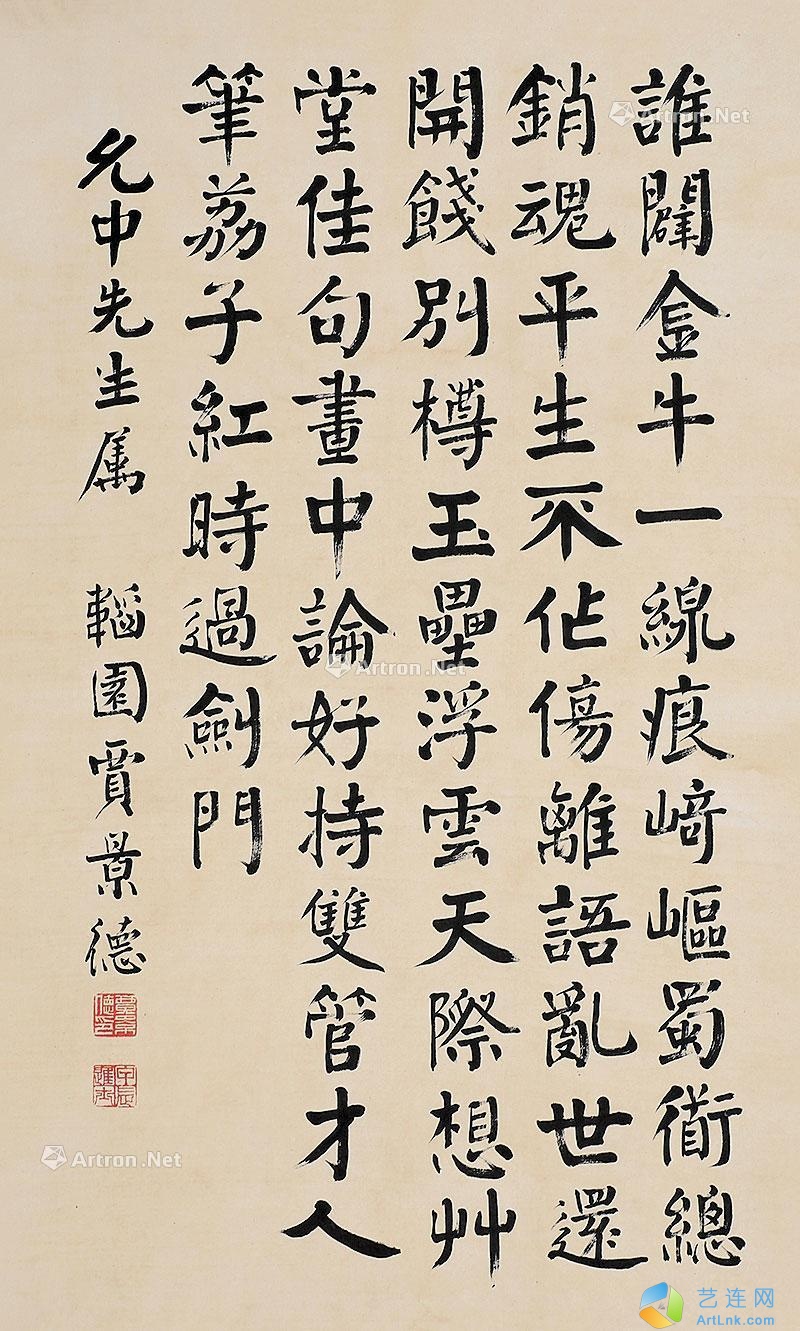 誰闢金牛一線痕崎嶇蜀衜總
銷魂平生不作傷離語亂世還
開餞別樽玉壘浮雲天際想艸
堂佳句畫中論好持雙管才人
筆荔子紅時過劍門
允中先生属 韜園賈景德
賈景德印
甲辰進士
Artron.Net
Artron.Net
Artron.Net
Artron.Net
艺连网
ArtLnk.com